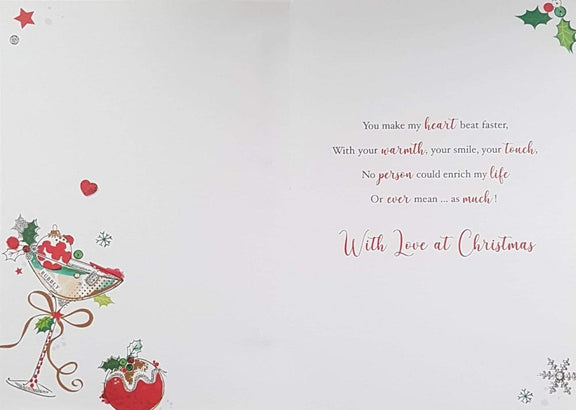 You make my heart beat faster,
With your warmth, your smile, your touch,
No person could enrich my life
Or ever mean ... as much!
With Love at Christmas
BUBBLY